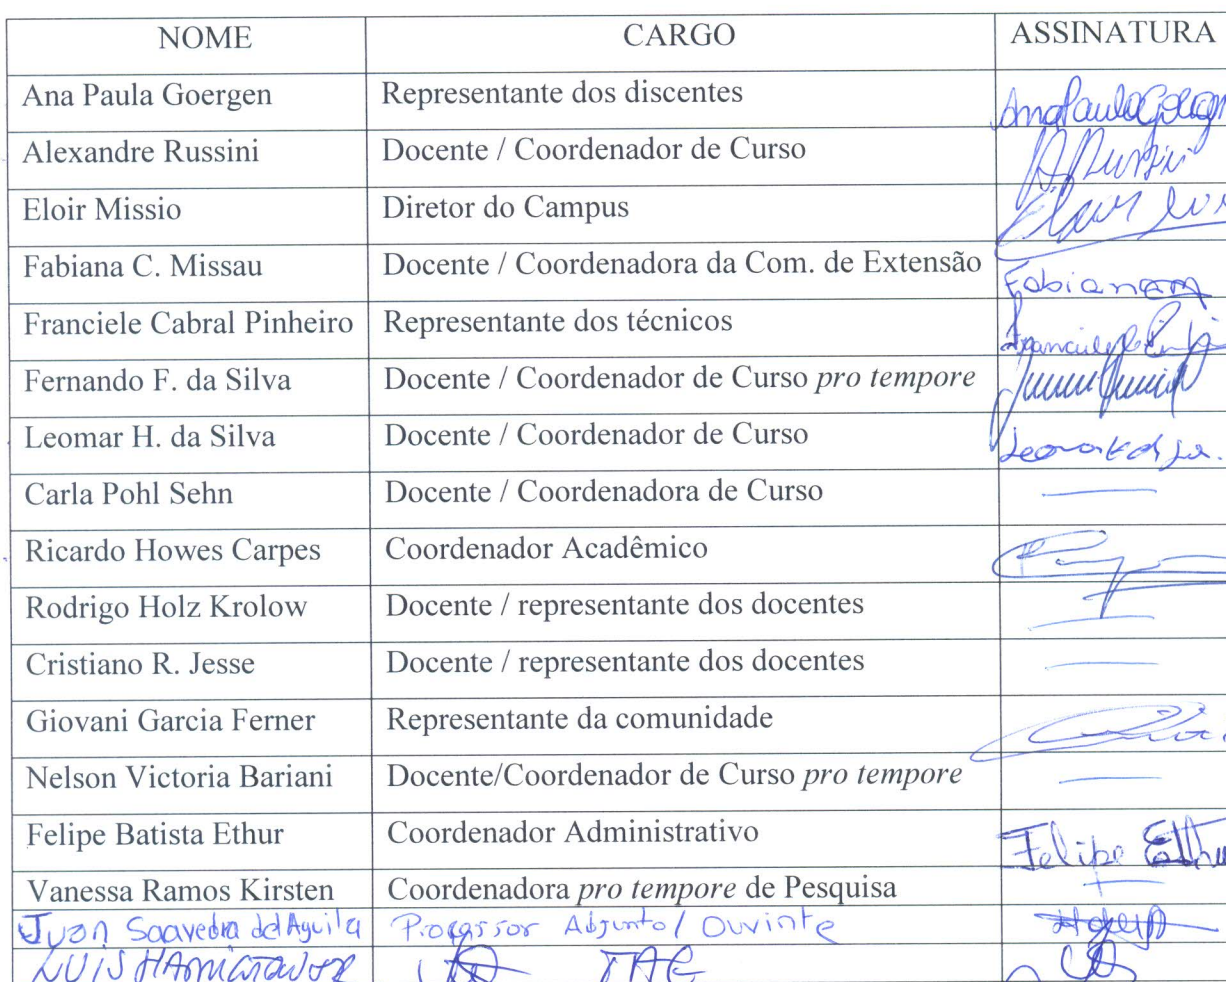 NOME CARGO ASSINATURA
Ana Paula Goergen Representante dos discentes Ana Paula Goergen
Alexandre Russini Docente / Coordenador de Curso ARussini
Eloir Missio Diretor do Campus
Fabiana C. Missau Docente / Coordenadora da Com. de Extensão
Franciele Cabral Pinheiro Representante dos técnicos
Fernando F. da Silva Docente / Coordenador de Curso pro tempore
Leomar H. da Silva Docente / Coordenador de Curso
Carla Pohl Sehn Docente / Coordenadora de Curso —
Ricardo Howes Carpes Coordenador Acadêmico
Rodrigo Holz Krolow Docente / representante dos docentes —
Cristiano R. Jesse Docente / representante dos docentes —
Giovani Garcia Ferner Representante da comunidade
Nelson Victoria Bariani Docente/Coordenador de Curso pro tempore —
Felipe Batista Ethur Coordenador Administrativo Felipe Ethur
Vanessa Ramos Kirsten Coordenadora pro tempore de Pesquisa —
Juan Saavedra del Aguila Professor Adjunto / Ouvinte
LUIS TAE